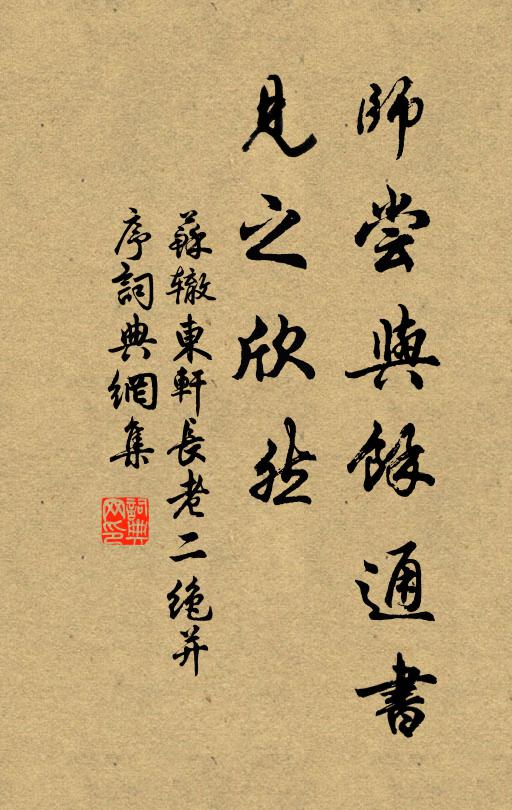 師嘗與餘通書
見之欣然
蘇轍東軒長老二絶并
序詞典網集
詞典
网印